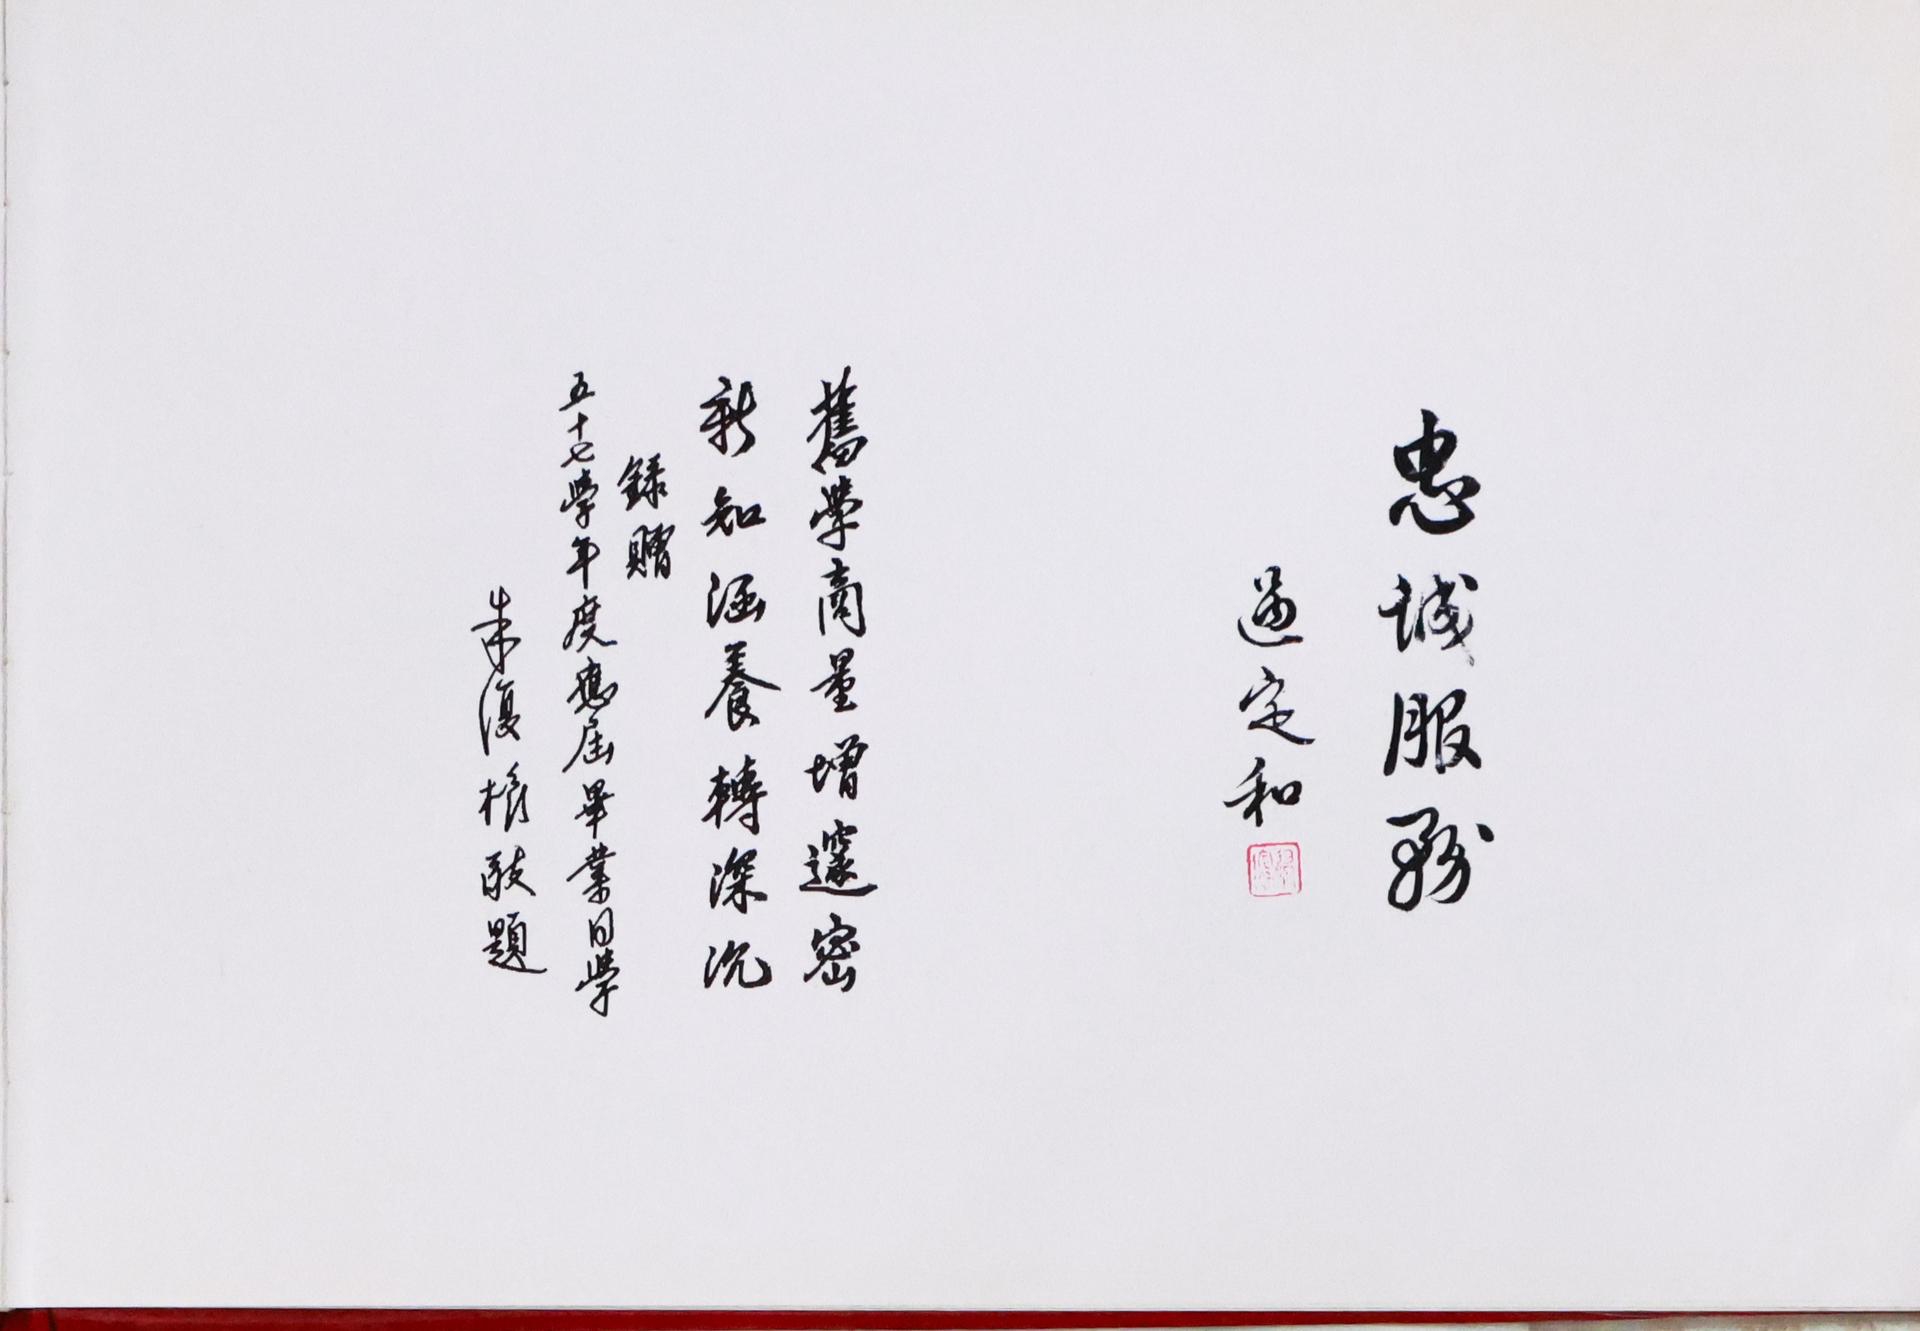 忠誠服務
過定和
舊學商量增邃密
新知涵養轉深沉
錄贈
五十七學年度應屆畢業同學
朱復根敬題